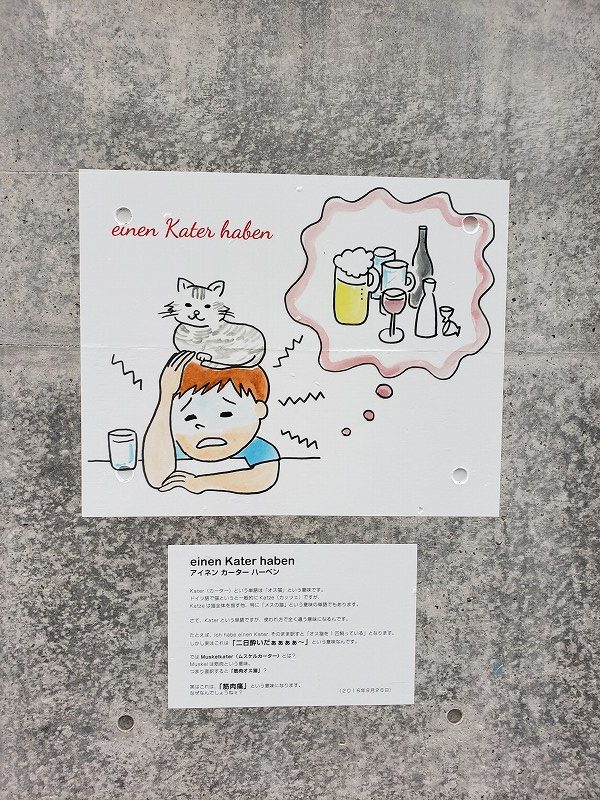 einen Kater haben
einen Kater haben
アイネン カーター ハーベン
Kater（カーター）という単語は「オス猫」という意味です。
ドイツ語で猫というと一般的にKatze（カッツェ）ですが、
Katzeは猫全体を指す他、特に「メスの猫」という意味の単語でもあります。
さて、Katerという単語ですが、使われ方で全く違う意味になるんです。
たとえば、Ich habe einen Kater. そのまま訳すと「オス猫を1匹飼っている」となります。
しかし実はこれは「二日酔いだぁぁぁぁ～」という意味なんです。
ではMuskelkater（ムスケルカーター）とは？
Muskelは筋肉という意味。
つまり直訳すると「筋肉オス猫」？
実はこれは、「筋肉痛」という意味になります。
なぜなんでしょうねぇ？
（2016年9月26日）